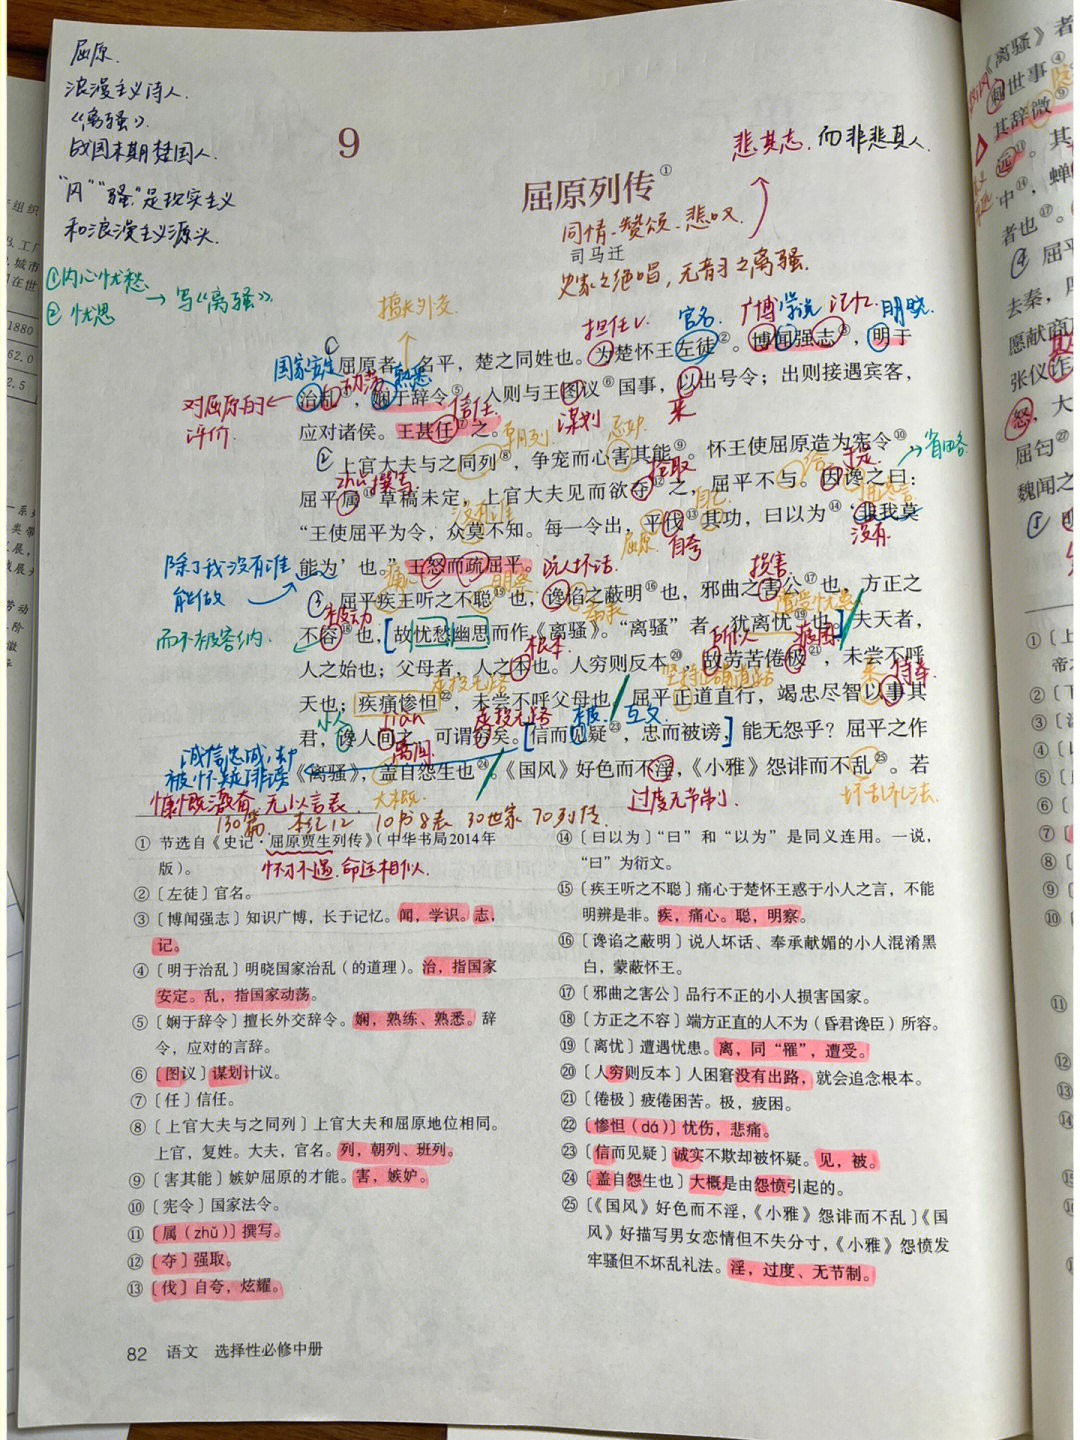 屈原.
浪漫主义诗人.
《离骚》.
战国末期楚国人.
"风" "骚"是现实主义
和浪漫主义源头.
①内心忧愁
②忧思
→写《离骚》.
9
悲其志.而非悲其人.
屈原列传①
同情、赞颂、悲叹
司马迁
史家之绝唱，无韵之离骚.
擅长外交
担任
官名.
广博 学说 记忆
明晓.
屈原者，名平，楚之同姓也。为楚怀王左徒②。博闻强志③，明于
国家安定
动荡
熟悉
治乱④，娴于辞令⑤。入则与王图议⑥国事，以出号令；出则接遇宾客，
对屈原的
评价.
信任
谋划
来
应对诸侯。王甚任⑦之。
朝列
忌妒
上官大夫与之同列⑧，争宠而心害其能⑨。怀王使屈原造为宪令⑩，
zhǔ 撰写
抢取
给
于是
屈平属⑪草稿未定，上官大夫见而欲夺⑫之，屈平不与。因谗之曰：
没有谁
自己
“王使屈平为令，众莫不知。每一令出，平伐⑬其功，曰以为⑭‘非我莫
屈原
自夸
没有
除了我没有谁
能做
能为’也。”王怒而疏屈平。
说人坏话
损害
痛心
明察
屈平疾王听之不聪⑮也，谗谄之蔽明⑯也，邪曲之害公⑰也，方正之
被动
而不被容纳
遭受忧患
不容⑱也，故忧愁幽思而作《离骚》。“离骚”者，犹离忧⑲也。夫天者，
根本
所以
疲困
人之始也；父母者，人之本也。人穷则反本⑳，故劳苦倦极㉑，未尝不呼
侍奉
天也；疾痛惨怛㉒，未尝不呼父母也。屈平正道直行，竭忠尽智以事其
小人
jiàn
离间
走投无路
被
互文
君，谗人间之，可谓穷矣。信而见疑㉓，忠而被谤，能无怨乎？屈平之作
诚信忠诚，却
被怀疑诽谤
《离骚》，盖自怨生也㉔。《国风》好色而不淫，《小雅》怨诽而不乱㉕。若
慷慨激奋，无以言表
大概
过度无节制.
坏乱礼法.
130篇 本纪12 10书8表 30世家 70列传
① 节选自《史记·屈原贾生列传》（中华书局2014年
版）。
怀才不遇.命运相似.
② 〔左徒〕官名。
③ 〔博闻强志〕知识广博，长于记忆。闻，学识。志，
记。
④ 〔明于治乱〕明晓国家治乱（的道理）。治，指国家
安定。乱，指国家动荡。
⑤ 〔娴于辞令〕擅长外交辞令。娴，熟练、熟悉。辞
令，应对的言辞。
⑥ 〔图议〕谋划计议。
⑦ 〔任〕信任。
⑧ 〔上官大夫与之同列〕上官大夫和屈原地位相同。
上官，复姓。大夫，官名。列，朝列、班列。
⑨ 〔害其能〕嫉妒屈原的才能。害，嫉妒。
⑩ 〔宪令〕国家法令。
⑪ 〔属（zhǔ）〕撰写。
⑫ 〔夺〕强取。
⑬ 〔伐〕自夸，炫耀。
⑭ 〔曰以为〕“曰”和“以为”是同义连用。一说，
“曰”为衍文。
⑮ 〔疾王听之不聪〕痛心于楚怀王惑于小人之言，不能
明辨是非。疾，痛心。聪，明察。
⑯ 〔谗谄之蔽明〕说人坏话、奉承献媚的小人混淆黑
白，蒙蔽怀王。
⑰ 〔邪曲之害公〕品行不正的小人损害国家。
⑱ 〔方正之不容〕端方正直的人不为（昏君谗臣）所容。
⑲ 〔离忧〕遭遇忧患。离，同“罹”，遭受。
⑳ 〔人穷则反本〕人困窘没有出路，就会追念根本。
㉑ 〔倦极〕疲倦困苦。极，疲困。
㉒ 〔惨怛（dá）〕忧伤，悲痛。
㉓ 〔信而见疑〕诚实不欺却被怀疑。见，被。
㉔ 〔盖自怨生也〕大概是由怨愤引起的。
㉕ 〔《国风》好色而不淫，《小雅》怨诽而不乱〕《国
风》好描写男女恋情但不失分寸，《小雅》怨愤发
牢骚但不坏乱礼法。淫，过度、无节制。
82 语文 选择性必修中册